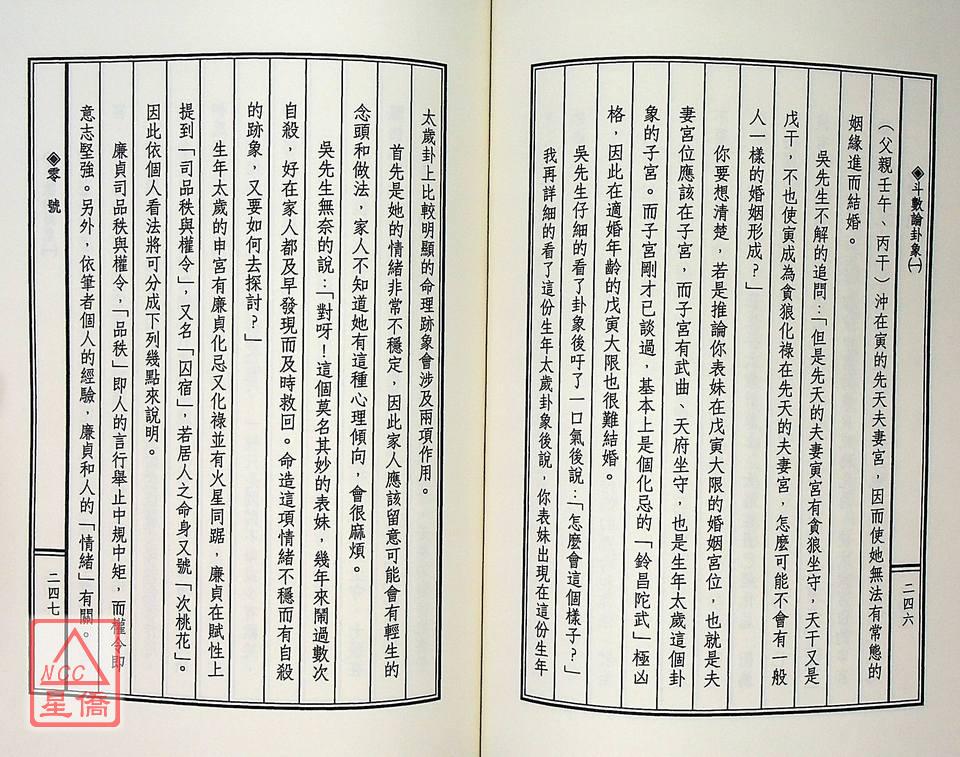 ◈斗數論卦象㈠
二四六
（父親壬午、丙干）沖在寅的先天夫妻宮，因而使她無法有常態的
姻緣進而結婚。
吳先生不解的追問：「但是先天的夫妻寅宮有貪狼坐守，天干又是
戊干，不也使寅成為貪狼化祿在先天的夫妻宮，怎麼可能不會有一般
人一樣的婚姻形成？」
你要想清楚，若是推論你表妹在戊寅大限的婚姻宮位，也就是夫
妻宮位應該在子宮，而子宮有武曲、天府坐守，也是生年太歲這個卦
象的子宮。而子宮剛才已談過，基本上是個化忌的「鈴昌陀武」極凶
格，因此在適婚年齡的戊寅大限也很難結婚。
吳先生仔細的看了卦象後吁了一口氣後說：「怎麼會這個樣子？」
我再詳細的看了這份生年太歲卦象後說，你表妹出現在這份生年
太歲卦上比較明顯的命理跡象會涉及兩項作用。
首先是她的情緒非常不穩定，因此家人應該留意可能會有輕生的
念頭和做法，家人不知道她有這種心理傾向，會很麻煩。
吳先生無奈的說：「對呀！這個莫名其妙的表妹，幾年來鬧過數次
自殺，好在家人都及早發現而及時救回。命造這項情緒不穩而有自殺
的跡象，又要如何去探討？」
生年太歲的申宮有廉貞化忌又化祿並有火星同踞，廉貞在賦性上
提到「司品秩與權令」，又名「囚宿」，若居人之命身又號「次桃花」。
因此依個人看法將可分成下列幾點來說明。
廉貞司品秩與權令，「品秩」即人的言行舉止中規中矩，而權令即
意志堅強。另外，依筆者個人的經驗，廉貞和人的「情緒」有關。
◈零 號
二四七
NCC
星僑